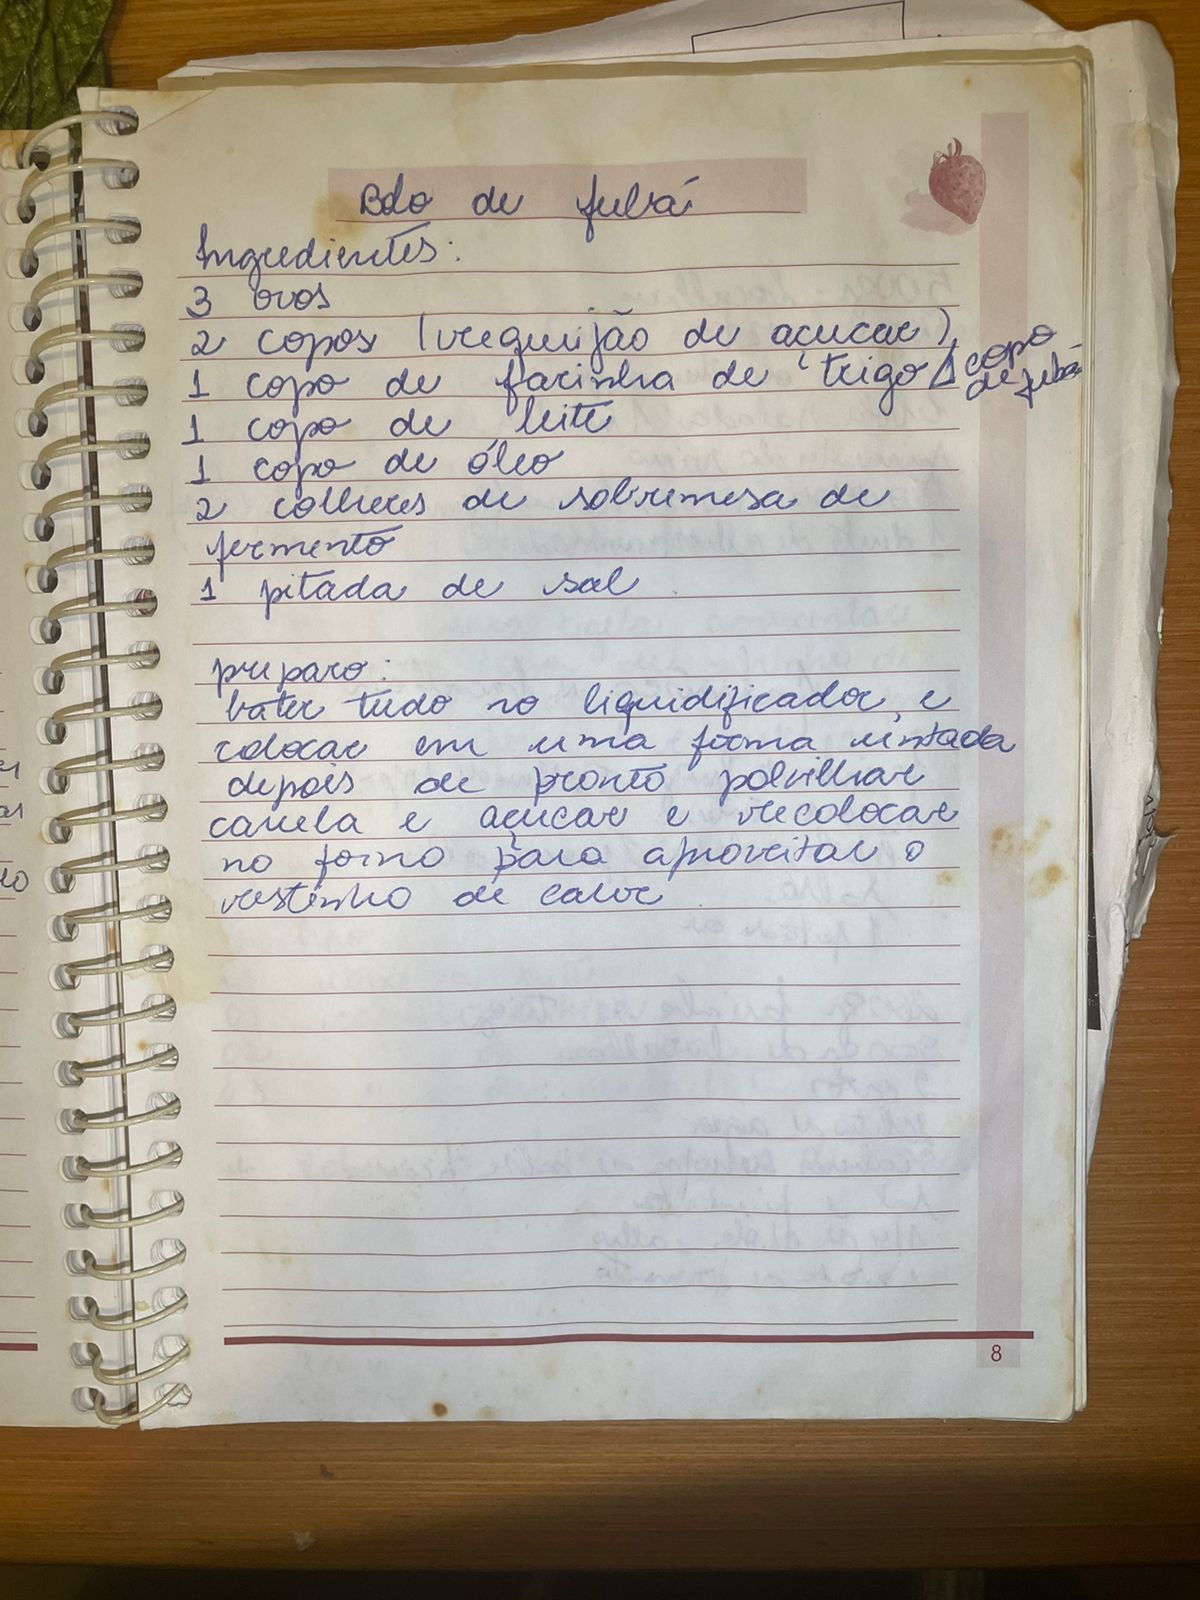 Bolo de fubá
Ingredientes:
3 ovos
2 copos (requeijão de açucar)
1 copo de farinha de trigo 1 copo
de fubá
1 copo de leite
1 copo de óleo
2 colheres de sobremesa de
fermento
1 pitada de sal.
preparo:
bater tudo no liquidificador, e
colocar em uma forma untada
depois de pronto polvilhar
canela e açucar e recolocar
no forno para aproveitar o
restinho de calor.
8